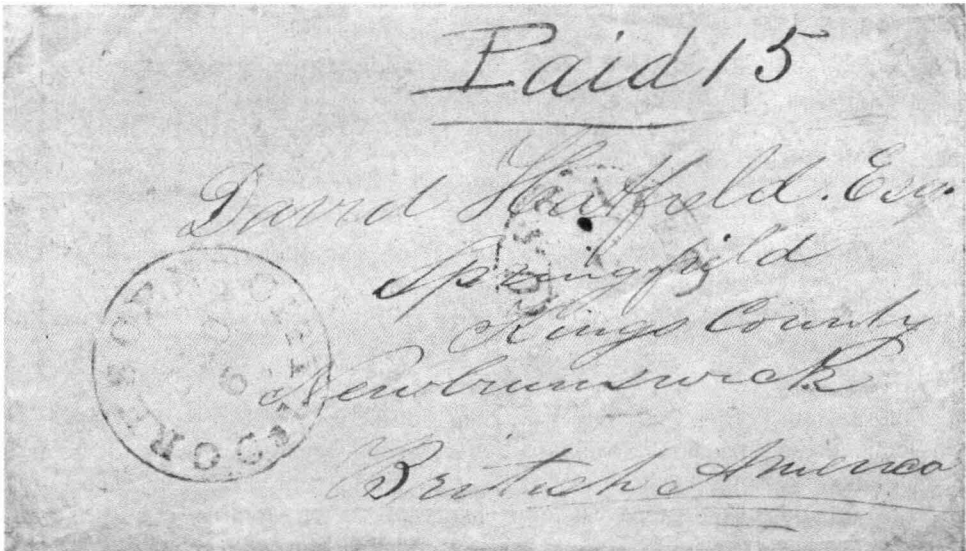 Paid 15
David Hatfield. Esq.
Springfield
Kings County
Newbrunswick
British America